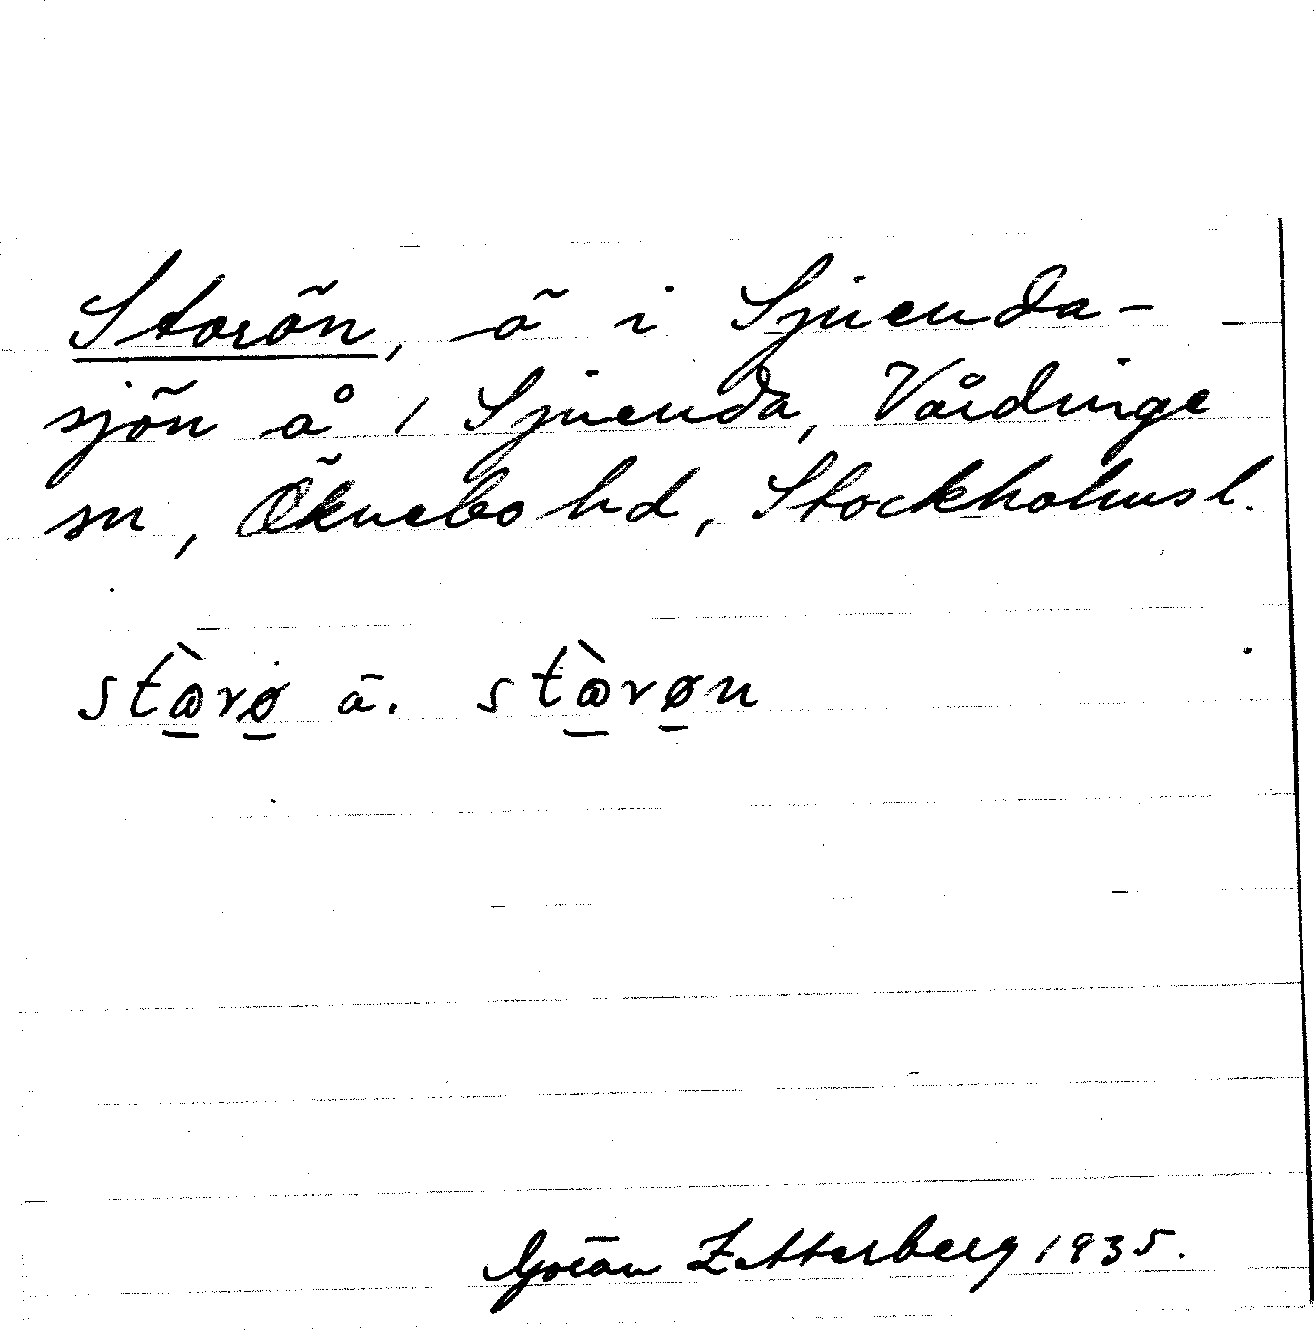 Storön, ö i Sjuenda-
sjön å 1 Sjuenda, Vårdinge
sn, Öknebo hd, Stockholms l.
stòrø ä. stòrøn
Göran Zetterberg 1935.